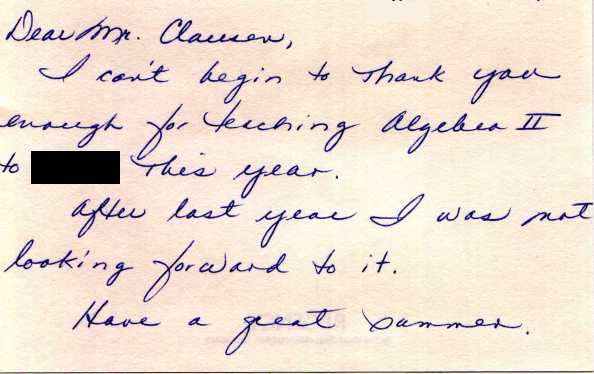 Dear Mr. Clausen,
I can't begin to thank you
enough for teaching Algebra II
to this year.
After last year I was not
looking forward to it.
Have a great summer.